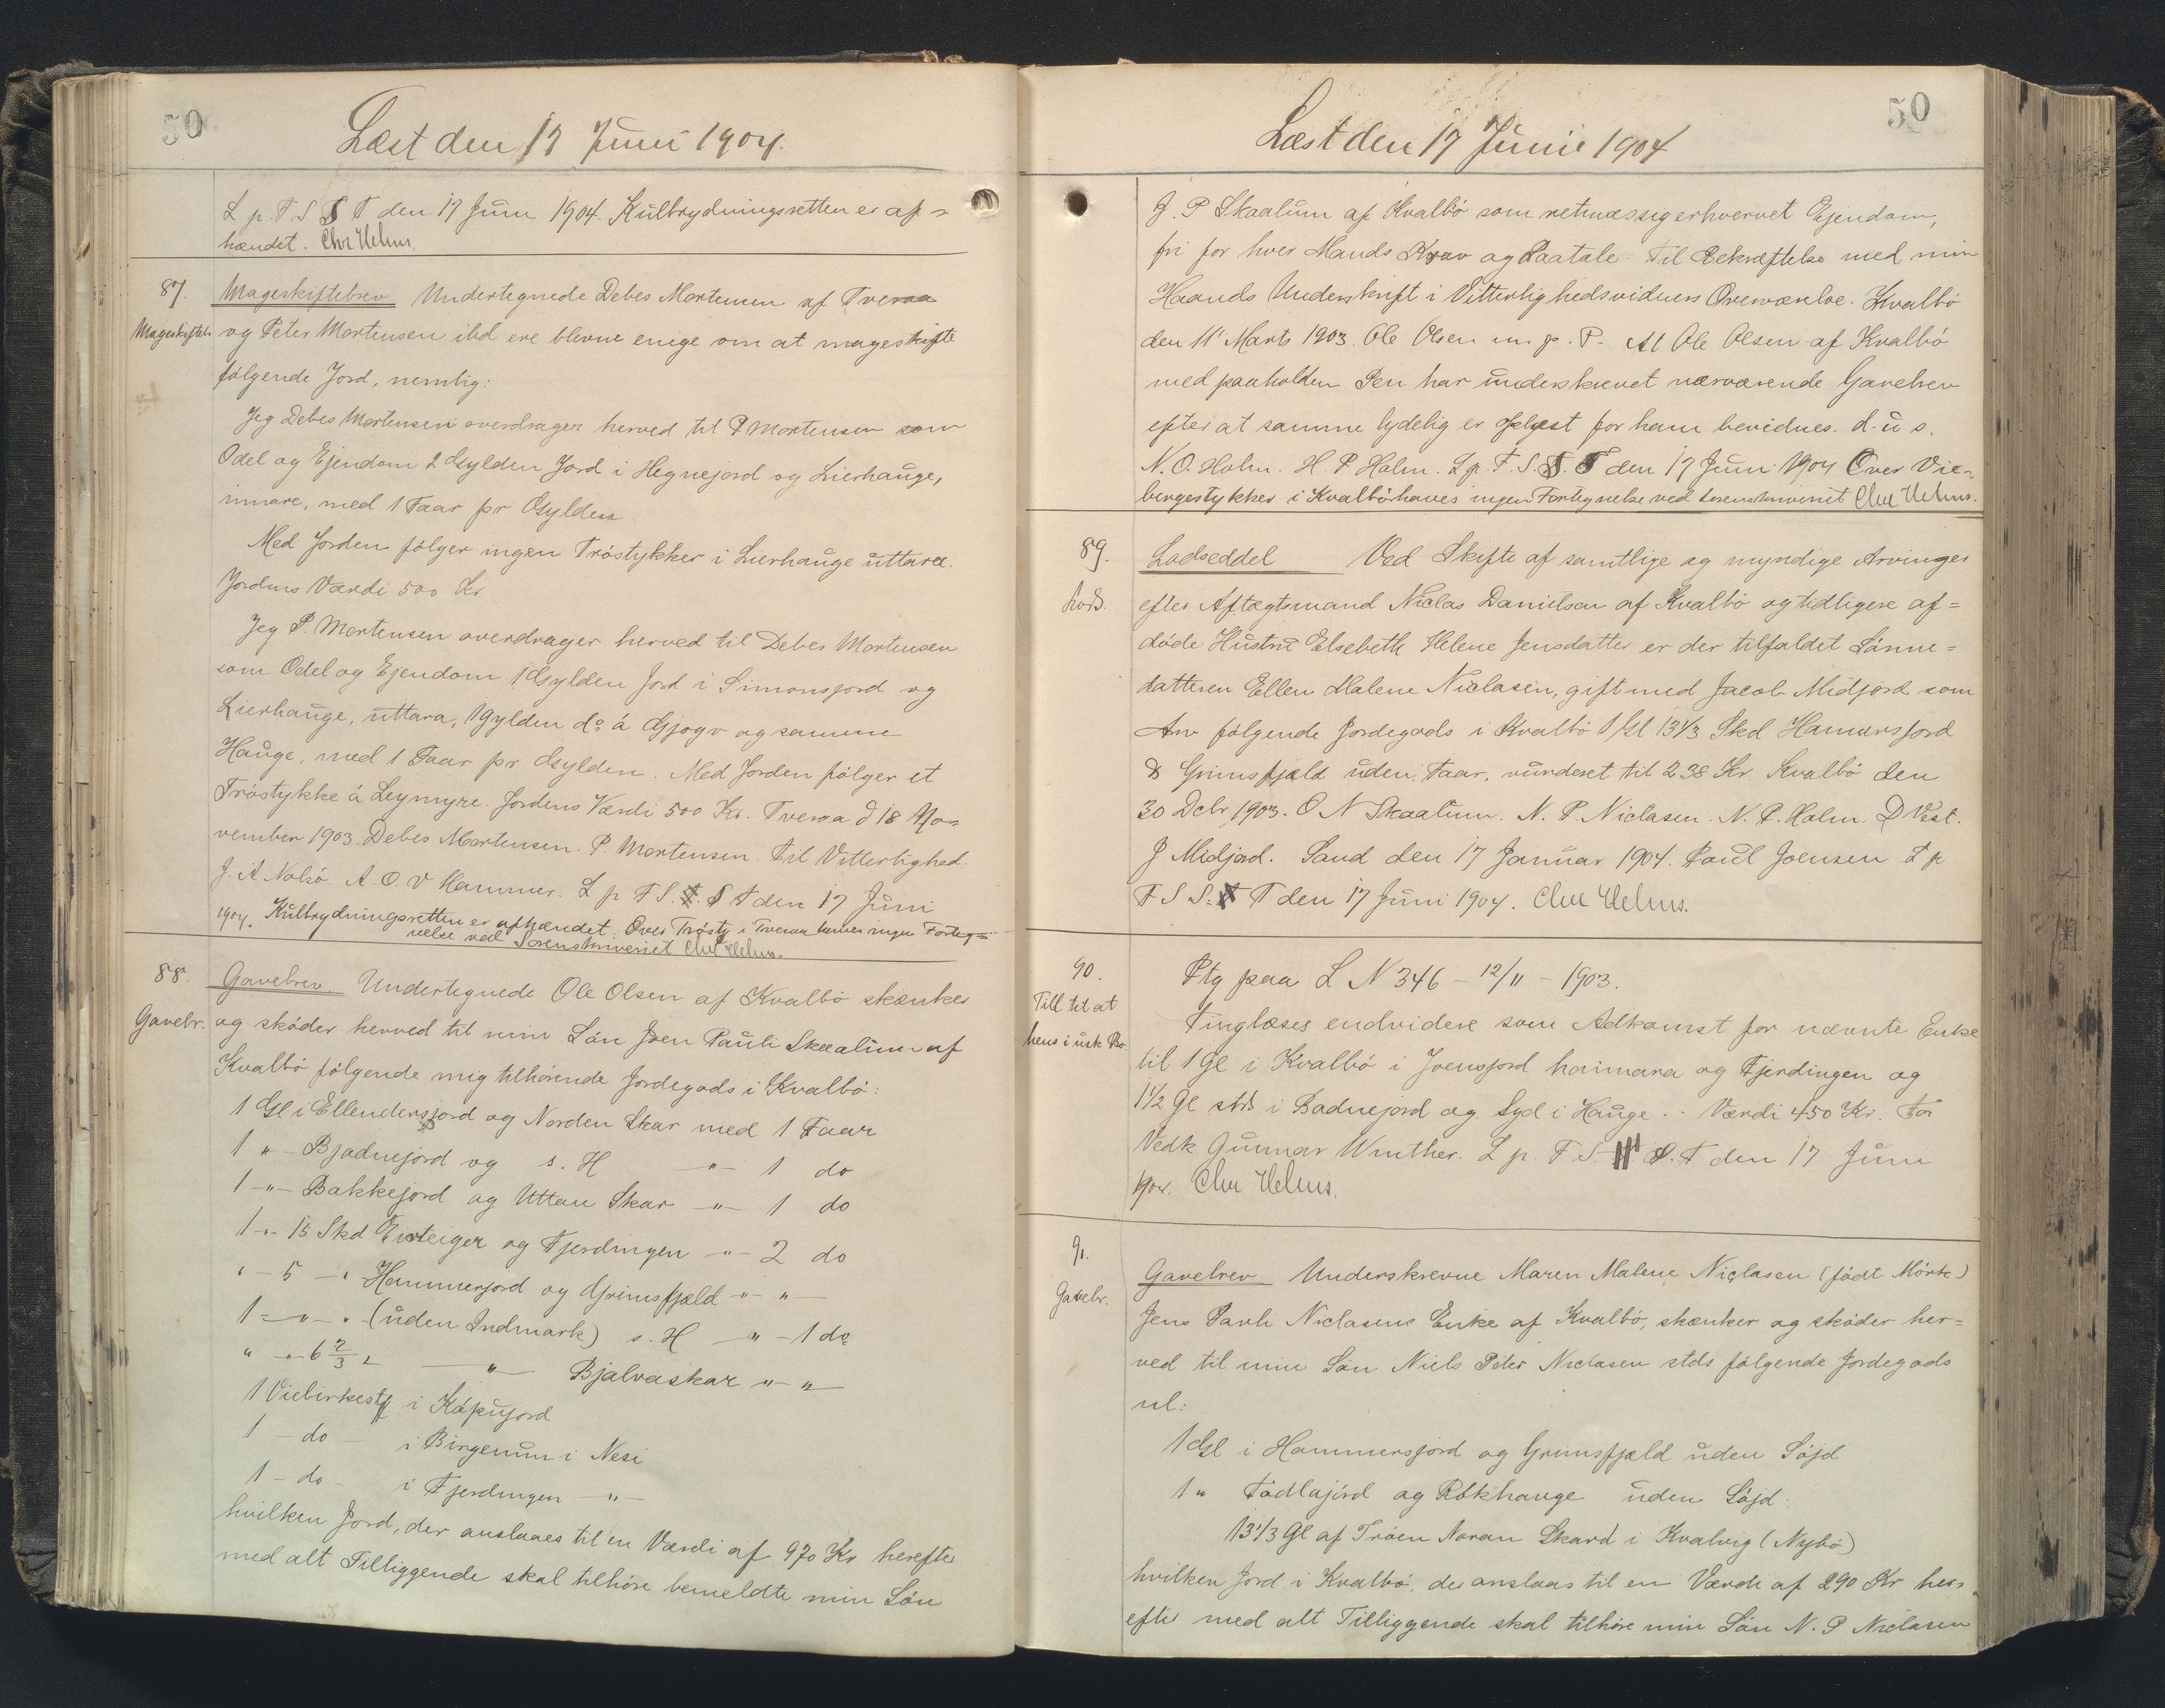 50
Læst den 17 Juni 1904.
L p. F S S T den 17 Juni 1904. Kulbrydningsretten er af=
hændet. Chr Helms.
87. Mageskiftebrev Undertegnede Debes Mortensen af Tveraa
Mageskiftebr. og Peter Mortensen ibd ere blevne enige om at mageskifte
følgende Jord, nemlig:
Jeg Debes Mortensen overdrager herved til P Mortensen som
Odel og Ejendom 2 Gylden Jord i Hegnejord og Lierhauge,
innare, med 1 Faar pr Gylden
Med Jorden følger ingen Tróstykker i Lierhauge uttara.
Jordens Værdi 500 Kr
Jeg P. Mortensen overdrager herved til Debes Mortensen
som Odel og Ejendom 1 Gylden Jord i Simonsjord og
Lierhauge, uttara, 1 Gylden do á Gjogv og samme
Hauge, med 1 Faar pr Gylden. Med Jorden følger et
Tróstykke á Leymyre. Jordens Værdi 500 Kr. Tveraa d 18 No=
vember 1903. Debes Mortensen. P. Mortensen. Til Vitterlighed.
J. A Nolsó. A. O. V Hammer. L p F S. S T den 17 Juni
1904. Kulbrydningsretten er afhændet. Over Tróstÿ i Tveraa haves ingen Forteg=
nelse ved Sorenskriveriet Chr Helms.
88. Gavebrev Undertegnede Ole Olsen af Kvalbø skænker
Gavebr. og skøder herved til min Søn Joen Pauli Skaalum af
Kvalbø følgende mig tilhørende Jordegods i Kvalbø:
1 Gl i Ellendersjord og Norden Skar med 1 Faar
1 " - Bjadnejord og s. H - " - 1 do
1 - " - Bakkejord og Uttan Skar - " - 1 do
1 - " - 15 Skd Eirteiger og Fjerdingen - " - 2 do
" - 5 - " Hammerjord og Grimsfjæld - " - " -
1 - " - " (uden Indmark) s. H - " - 1 do
" - " - 6 2/3 " - " - Bjalvaskar - " - " -
1 Viebirkestÿ i Kápujord
1 - do - i Birgenum i Nesi
1 - do - i Fjerdingen - " -
hvilken Jord, der anslaaes til en Værdi af 970 Kr herefter
med alt Tilliggende skal tilhøre bemeldte min Søn
50
Læst den 17 Junii 1904
J. P Skaalum af Kvalbø som retmæssig erhvervet Ejendom,
fri for hver Mands Krav og Paatale. Til Bekræftelse med min
Haands Underskrift i Vitterlighedsvidners Overværelse. Kvalbø
den 11' Marts 1903. Ole Olsen m. p. P. At Ole Olsen af Kvalbø
med paaholden Pen har underskrevet nærværende Gavebrev
efter at samme lydelig er oplæst for ham bevidnes. d. u s.
N. O. Holm. H. P Holm. L p. F. S. S. T den 17 Juni 1904 Over Vie=
bergestykker i Kvalbø haves ingen Fortegnelse ved Sorenskriveriet Chr Helms.
89. Lodseddel Ved Skifte af samtlige og myndige Arvinger
Lods. efter Aftægtsmand Niclas Danielsen af Kvalbø og tidligere af=
døde Hustru Elsebeth Helene Jensdatter er der tilfaldet Sønne=
datteren Ellen Malene Niclasen, gift med Jacob Midjord som
Arv følgende Jordegods i Kvalbø 1 Gl 13 1/3 Skd Hamersjord
& Grimsfjæld uden Faar, vurderet til 238 Kr. Kvalbø den
30 Dcbr 1903. O N Skaalum. N. P. Niclasen. N. P. Holm. D Vest.
J Midjord. Sand den 17 Januar 1904. Poul Joensen. L p
F S S. T den 17 Juni 1904. Chr Helms.
90. Ptg paa L N 346 - 12/11 - 1903.
Till til at
hens i usk Bo. Tinglæses endvidere som Adkomst for nævnte Enke
til 1 Gl i Kvalbø i Joensjord haimara og Fjerdingen og
1 1/2 Gl stds i Badnejord og Syd i Hauge. Værdi 450 Kr. For
Vedk Gunnar Winther. L p. F S S. T den 17 Juni
1904. Chr Helms.
91. Gavebrev Underskrevne Maren Malene Niclasen (født Mørk)
Gavebr. Jens Pauli Niclasens Enke af Kvalbø, skænker og skøder her=
ved til min Søn Niels Peter Niclasen stds følgende Jordegods
nl:
1 Gl i Hammersjord og Grimsfjæld uden Sójd
1 " Fodlajórd og Rókhauge uden Sójd.
13 1/3 Gl af Tróen Noran Skard i Kvalvig (Nybø)
hvilken Jord i Kvalbø, der anslaas til en Værdi af 290 Kr her=
efter med alt Tilliggende skal tilhøre min Søn N. P Niclasen